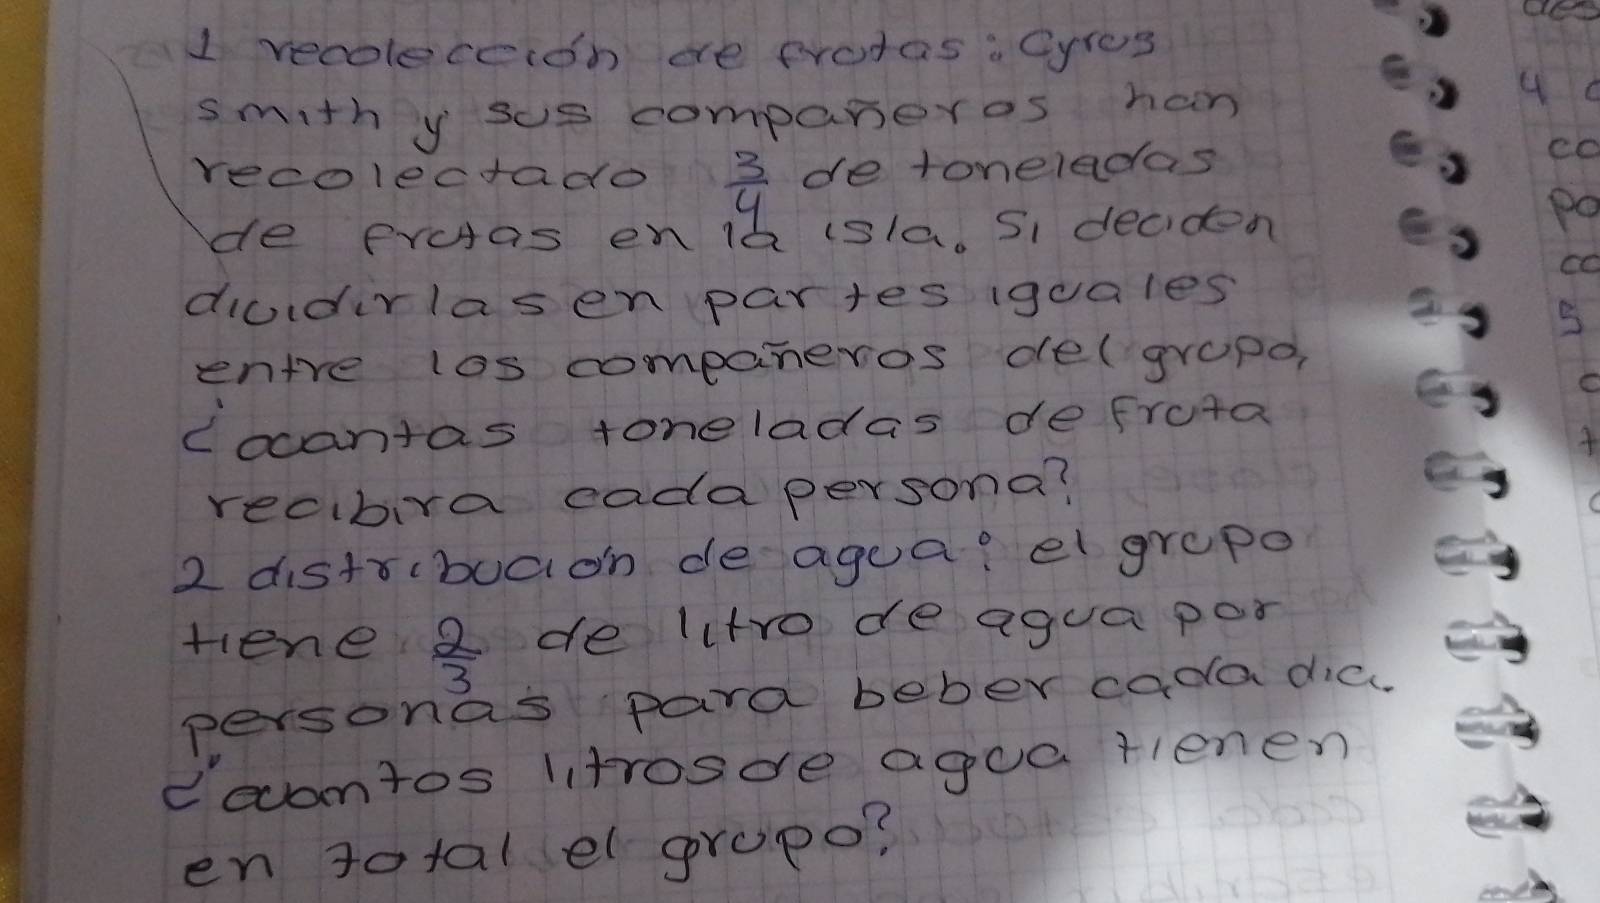 1 recolección de frutas: Cyrus
smith y sus compañeros han
recolectado 3/4 de toneladas
de frutas en la isla. Si deciden
dividirlas en partes iguales
entre los compañeros del grupo,
¿cuantas toneladas de fruta
recibira cada persona?
2 distribución de agua: el grupo
tiene 2/3 de litro de agua por
personas para beber cada dia.
¿cuantos litros de agua tienen
en total el grupo?
des
4 c
co
po
co
5